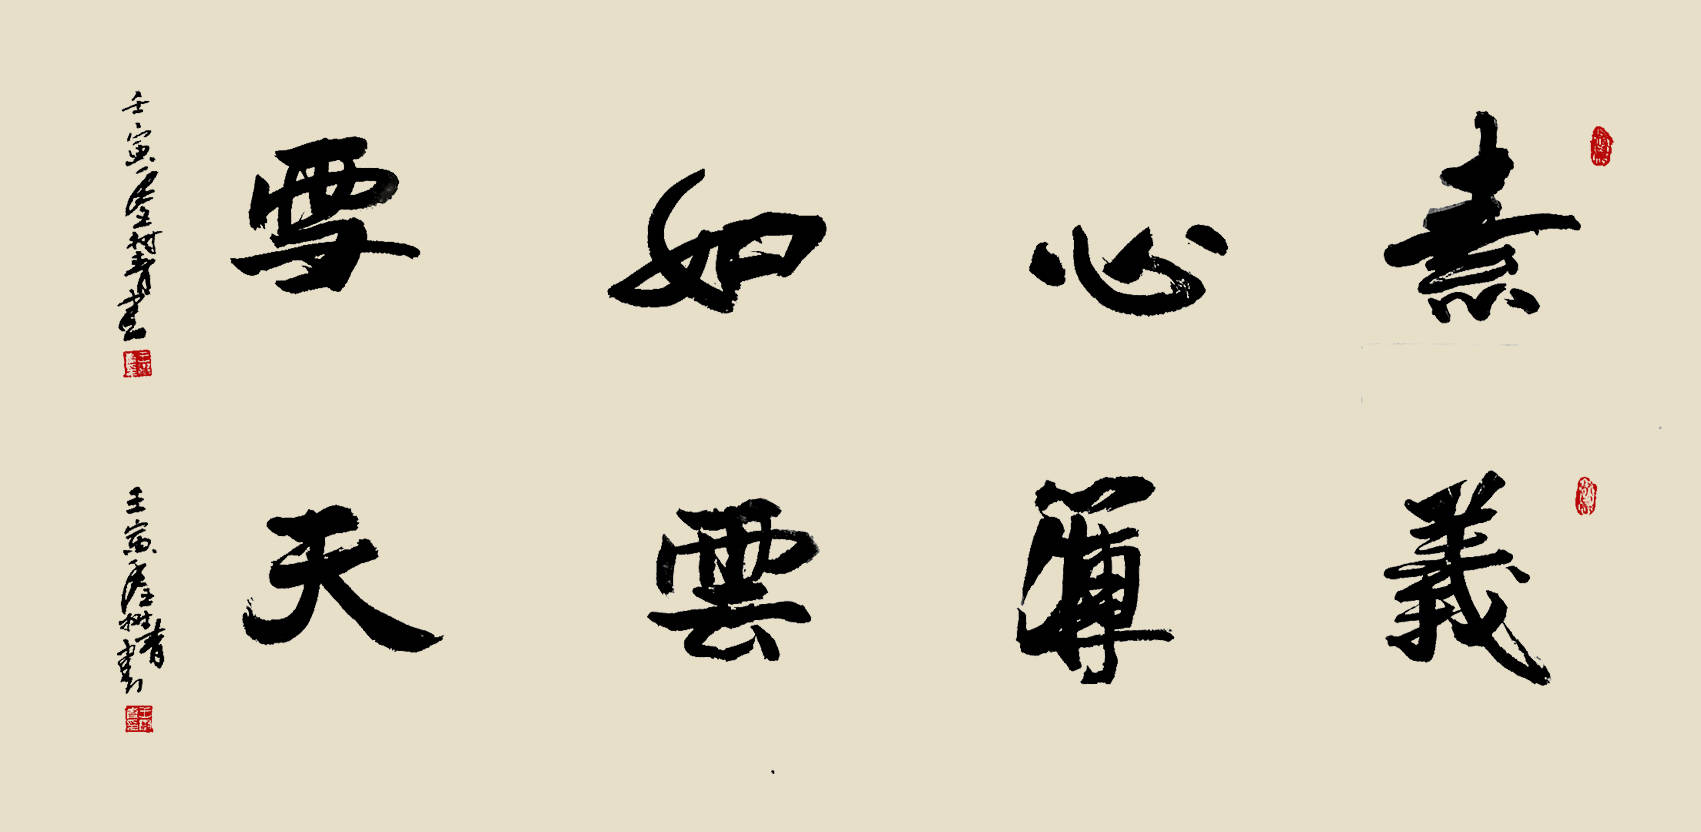 素心如雪
壬寅 树青書
義薄雲天
壬寅 树青書